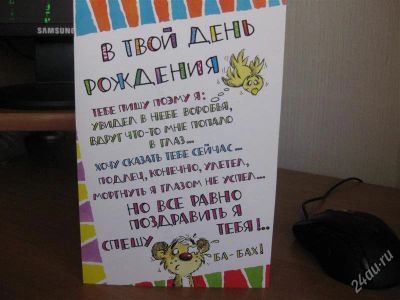 SAMSUNG
В ТВОЙ ДЕНЬ
РОЖДЕНИЯ
ТЕБЕ ПИШУ ПОЭМУ Я:
УВИДЕЛ В НЕБЕ ВОРОБЬЯ,
ВДРУГ ЧТО-ТО МНЕ ПОПАЛО
В ГЛАЗ...
ХОЧУ СКАЗАТЬ ТЕБЕ СЕЙЧАС...
ПОДЛЕЦ, КОНЕЧНО, УЛЕТЕЛ,
МОРГНУТЬ Я ГЛАЗОМ НЕ УСПЕЛ...
НО ВСЕ РАВНО
ПОЗДРАВИТЬ Я
СПЕШУ ТЕБЯ!..
БА-БАХ!
24du.ru